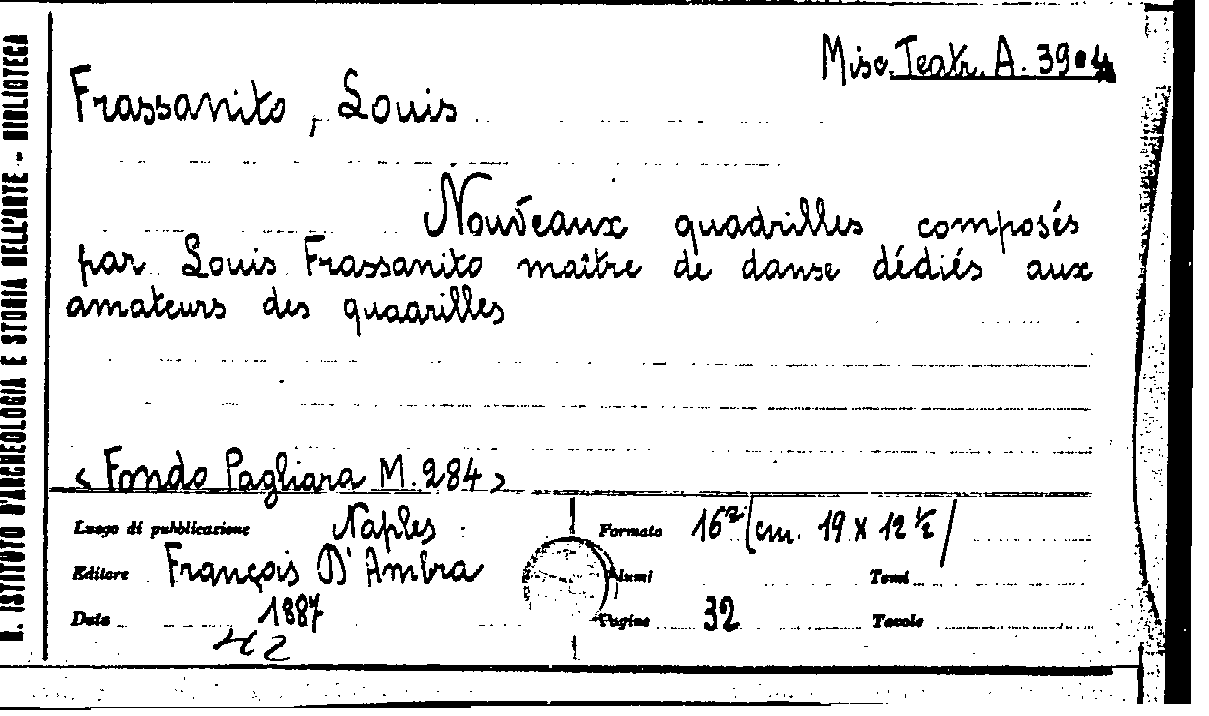 R. ISTITUTO D'ARCHEOLOGIA E STORIA DELL'ARTE - BIBLIOTECA
Misc. Teatr. A. 39
Frassanito, Louis
Nouveaux quadrilles composés
par Louis Frassanito maître de danse dédiés aux
amateurs des quadrilles
< Fondo Pagliara M. 284 >
Luogo di pubblicazione Naples
Formato 16° (cm. 19 x 12 ½)
Editore François D'Ambra
Volumi
Tomi
Data 1887
Pagine 32
Tavole